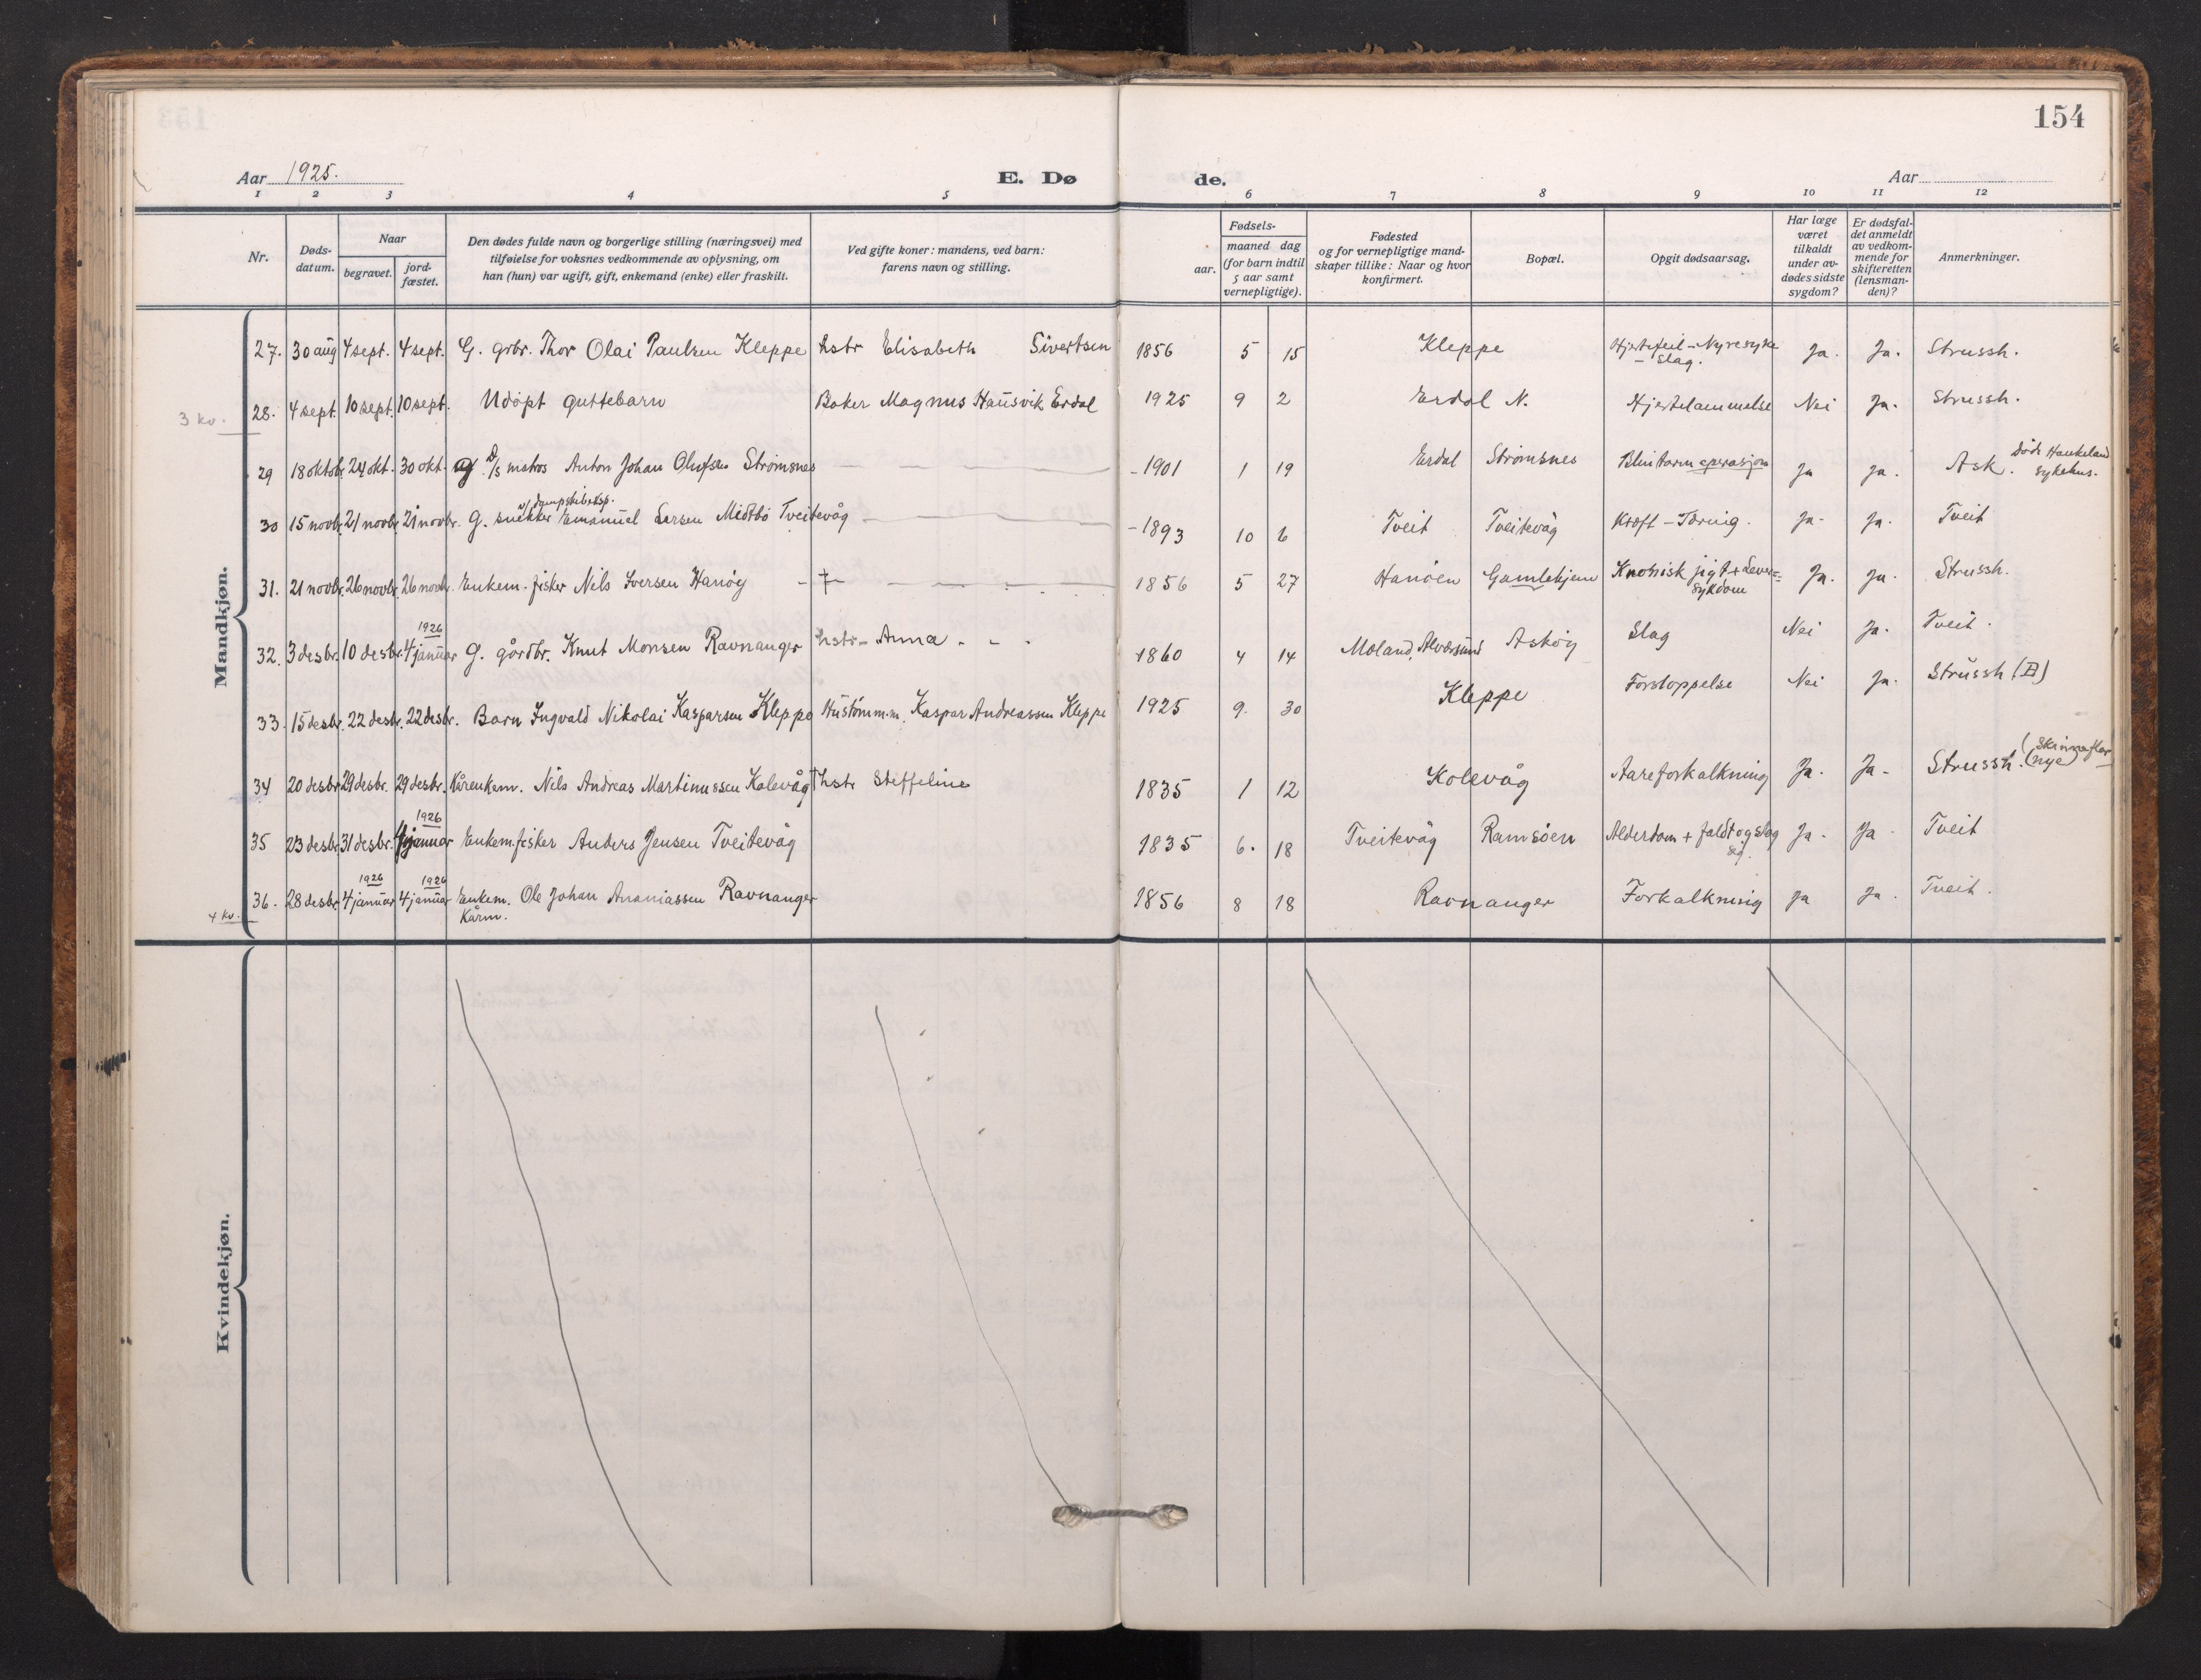 154
Aar 1925.
E. Dø
de.
Aar
1 2 3 4 5 6 7 8 9 10 11 12
Nr.
Døds-
datum.
Naar
begravet.
jord-
fæstet.
Den dødes fulde navn og borgerlige stilling (næringsvei) med
tilføielse for voksnes vedkommende av oplysning, om
han (hun) var ugift, gift, enkemand (enke) eller fraskilt.
Ved gifte koner: mandens, ved barn:
farens navn og stilling.
Fødsels-
aar.
maaned dag
(for barn indtil
5 aar samt
vernepligtige).
Fødested
og for vernepligtige mand-
skaper tillike: Naar og hvor
konfirmert.
Bopæl.
Opgit dødsaarsag.
Har læge
været
tilkaldt
under av-
dødes sidste
sygdom?
Er dødsfal-
det anmeldt
av vedkom-
mende for
skifteretten
(lensman-
den)?
Anmerkninger.
Mandkjøn.
27. 30 aug 4 sept. 4 sept. G. grbr. Thor Olai Paulsen Kleppe hstr Elisabeth Sivertsen 1856 5 15 Kleppe Hjertefeil - Nyresyke - Slag. Ja. Ja. Strussh.
3 kv.
28. 4 sept. 10 sept. 10 sept. Udöpt guttebarn Baker Magnus Hausvik Erdal 1925 9 2 Erdal N. Hjertelammelse Nei Ja. Strussh.
29 18 oktob. 24 okt. 30 okt. G. D/s matros Anton Johan Olufsen Strömsnes 1901 1 19 Erdal Strömsnes Blintarm operasjon Ja Ja. Ask. Död Haukeland sykehus.
30 15 novbr. 21 novbr. 21 novbr. G. snekker v/ dampskibeksp. Emanuel Larsen Midtbö Tveitevåg 1893 10 6 Tveit Tveitevåg Kræft - Tæring. Ja. Ja. Tveit
31. 21 novbr. 26 novbr. 26 novbr. Enkem. fisker Nils Iversen Hanöy 1856 5 27 Hanöen Gamlehjem Kronisk jigt + Lever= sykdom Ja. Ja. Strussh.
32. 3 desbr. 10 desbr. 1926 4 januar G. gårdbr. Knut Monsen Ravnanger hstr Anna 1860 4 14 Moland, Alversund Asköy Slag Nei Ja. Tveit.
33. 15 desbr. 22 desbr. 22 desbr. Barn Ingvald Nikolai Kasparsen Kleppe Hustömm.m. Kaspar Andreassen Kleppe 1925 9. 30 Kleppe Forstoppelse Nei Ja. Strussh
34 20 desbr 29 desbr. 29 desbr. Kårenkem. Nils Andreas Martinussen Kolevåg hstr Steffeline 1835 1 12 Kolevåg Aareforkalkning Ja. Ja. Strussh. (nye)
35 23 desbr 31 desbr. 1926 4 januar Enkem. fisker Anders Jensen Tveitevåg 1835 6. 18 Tveitevåg Ramsöen Alderdom + faldt og slog sig. Ja. Ja Tveit
4 kv.
36. 28 desbr. 1926 4 januar 1926 4 januar Enkem. Kårm. Ole Johan Ananiassen Ravnanger 1856 8 18 Ravnanger Forkalkning Ja Ja. Tveit.
Kvindekjøn.